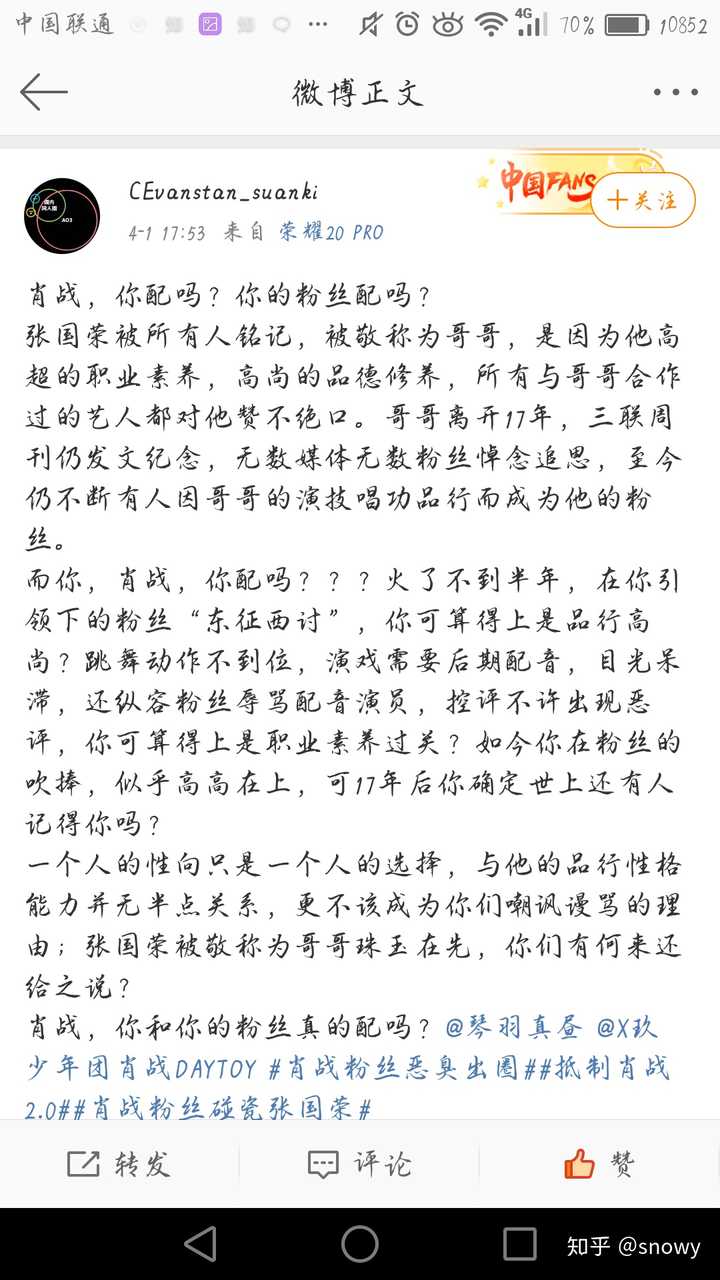 中国联通
4G
70%
10852
微博正文
国内
同人圈
AO3
CEvanstan_suanki
4-1 17:53 来自 荣耀20 PRO
中国FANS
十关注
肖战，你配吗？你的粉丝配吗？
张国荣被所有人铭记，被敬称为哥哥，是因为他高
超的职业素养，高尚的品德修养，所有与哥哥合作
过的艺人都对他赞不绝口。哥哥离开17年，三联周
刊仍发文纪念，无数媒体无数粉丝悼念追思，至今
仍不断有人因哥哥的演技唱功品行而成为他的粉
丝。
而你，肖战，你配吗？？？火了不到半年，在你引
领下的粉丝“东征西讨”，你可算得上是品行高
尚？跳舞动作不到位，演戏需要后期配音，目光呆
滞，还纵容粉丝辱骂配音演员，控评不许出现恶
评，你可算得上是职业素养过关？如今你在粉丝的
吹捧，似乎高高在上，可17年后你确定世上还有人
记得你吗？
一个人的性向只是一个人的选择，与他的品行性格
能力并无半点关系，更不该成为你们嘲讽谩骂的理
由；张国荣被敬称为哥哥珠玉在先，你们有何来还
给之说？
肖战，你和你的粉丝真的配吗？@琴羽真昼 @X玖
少年团肖战DAYTOY #肖战粉丝恶臭出圈##抵制肖战
2.0##肖战粉丝碰瓷张国荣#
转发
评论
赞
知乎 @snowy